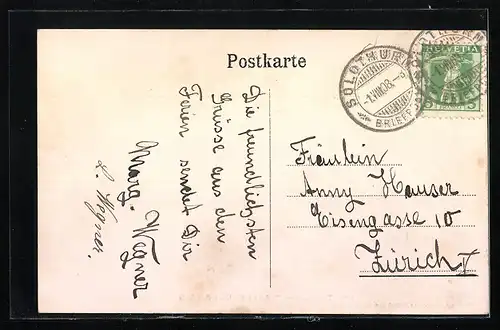 Postkarte
SOLOTHURN
1.VIII.08.
BRIEF
HELVETIA
5
Die freundlichsten
Grüsse aus den
Ferien sendet Dir
Marg. Wegner
L. Wegner.
Fräulein
Anny Hauser
Eisengasse 10
Zürich V